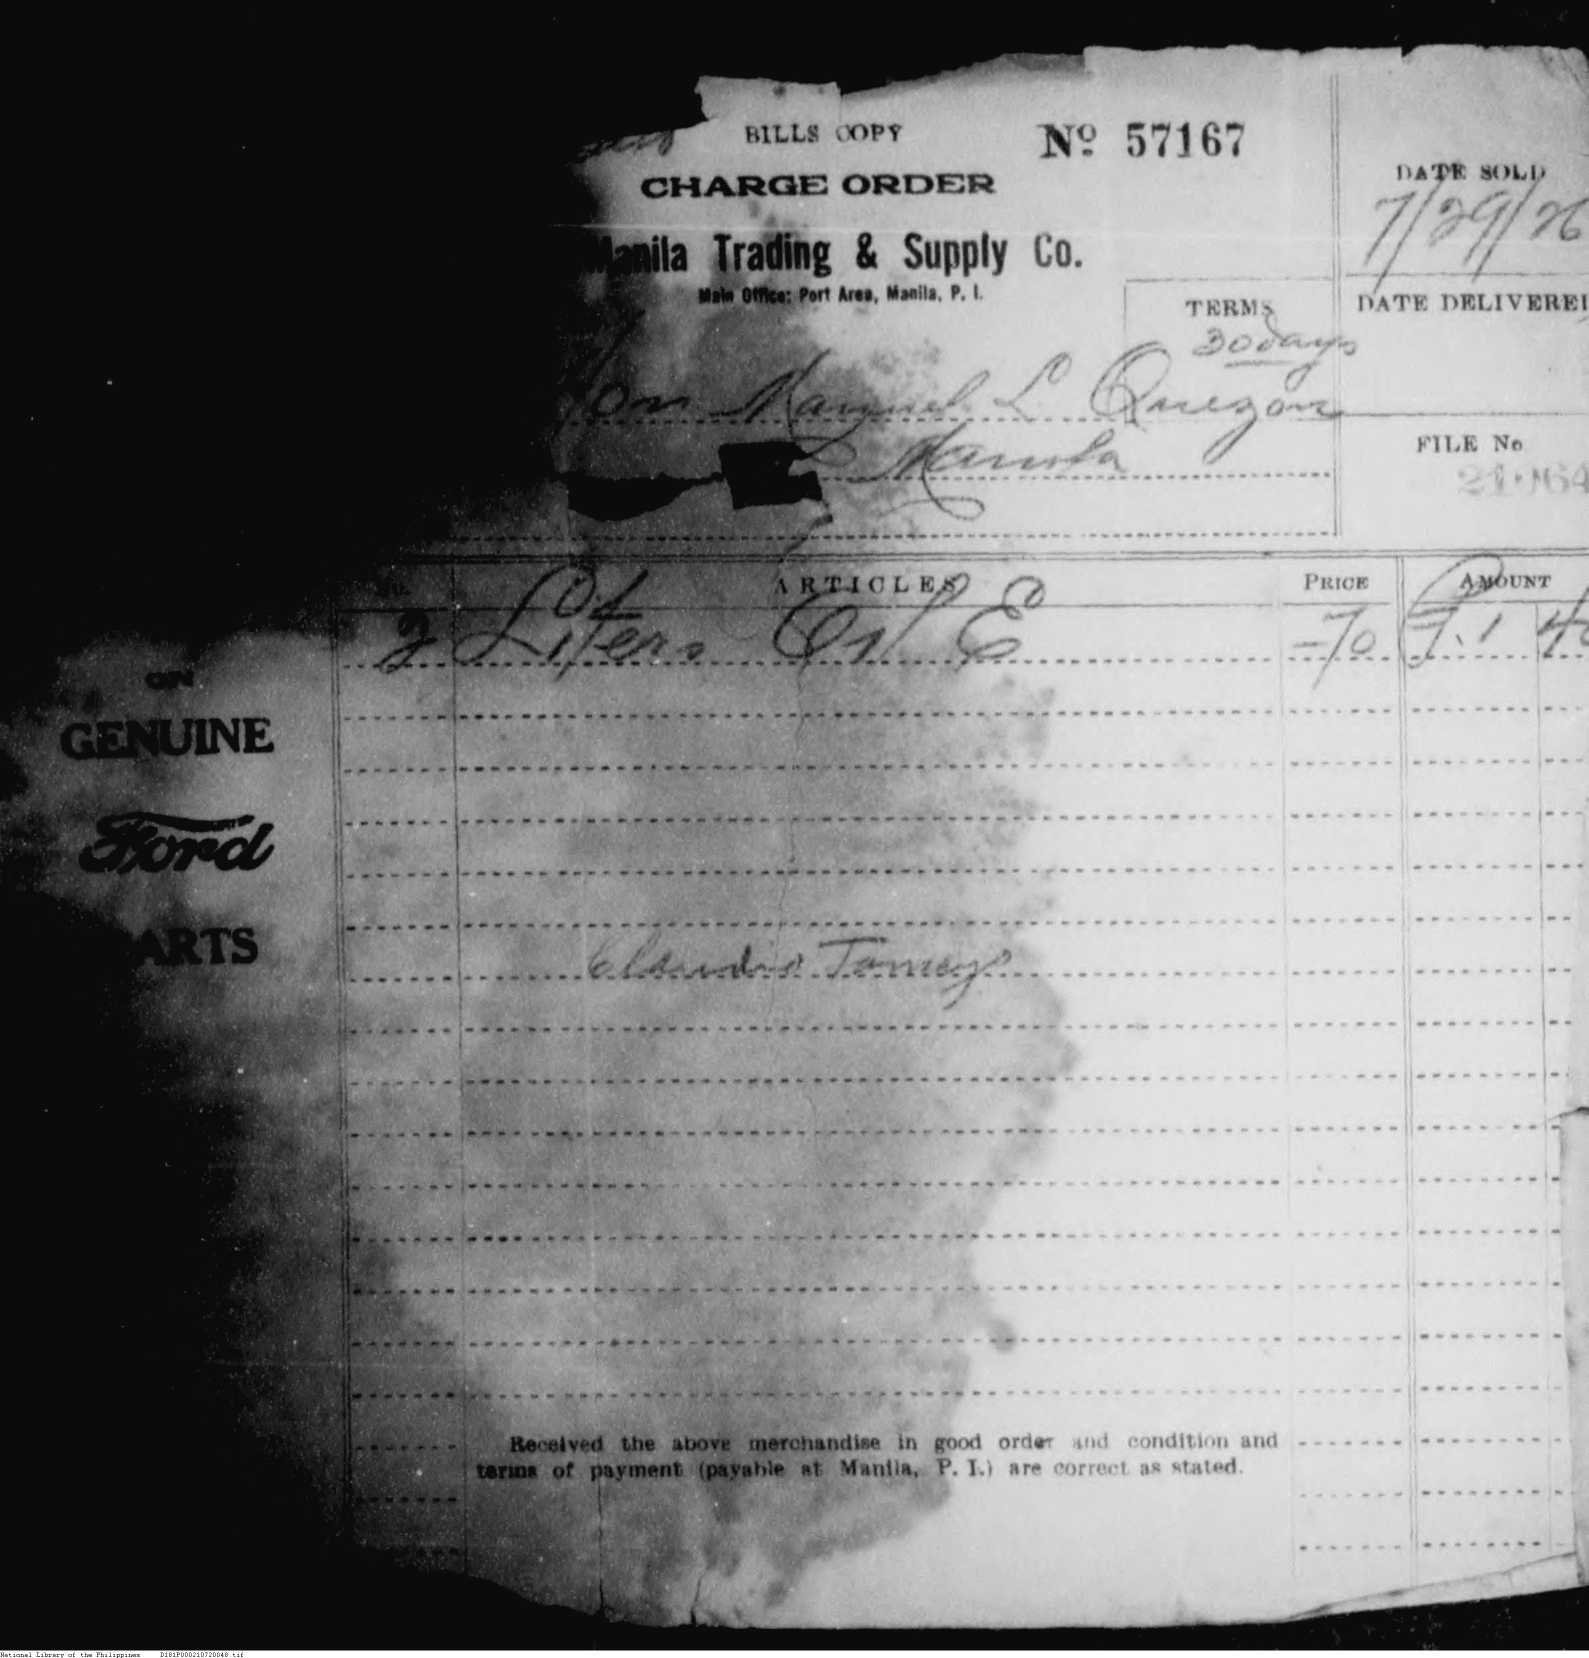 BILLS COPY
Nº 57167
CHARGE ORDER
Manila Trading & Supply Co.
Main Office: Port Area, Manila, P. I.
DATE SOLD
7/29/26
TERMS
30 days
DATE DELIVERED
Hon Manuel L Quezon
Manila
FILE No
ARTICLES PRICE AMOUNT
2 Liters Oil E -70 ₱ 1 40
ON
GENUINE
Ford
PARTS
Claudio
Received the above merchandise in good order and condition and
terms of payment (payable at Manila, P. I.) are correct as stated.
National Library of the Philippines D181P000210720048.tif